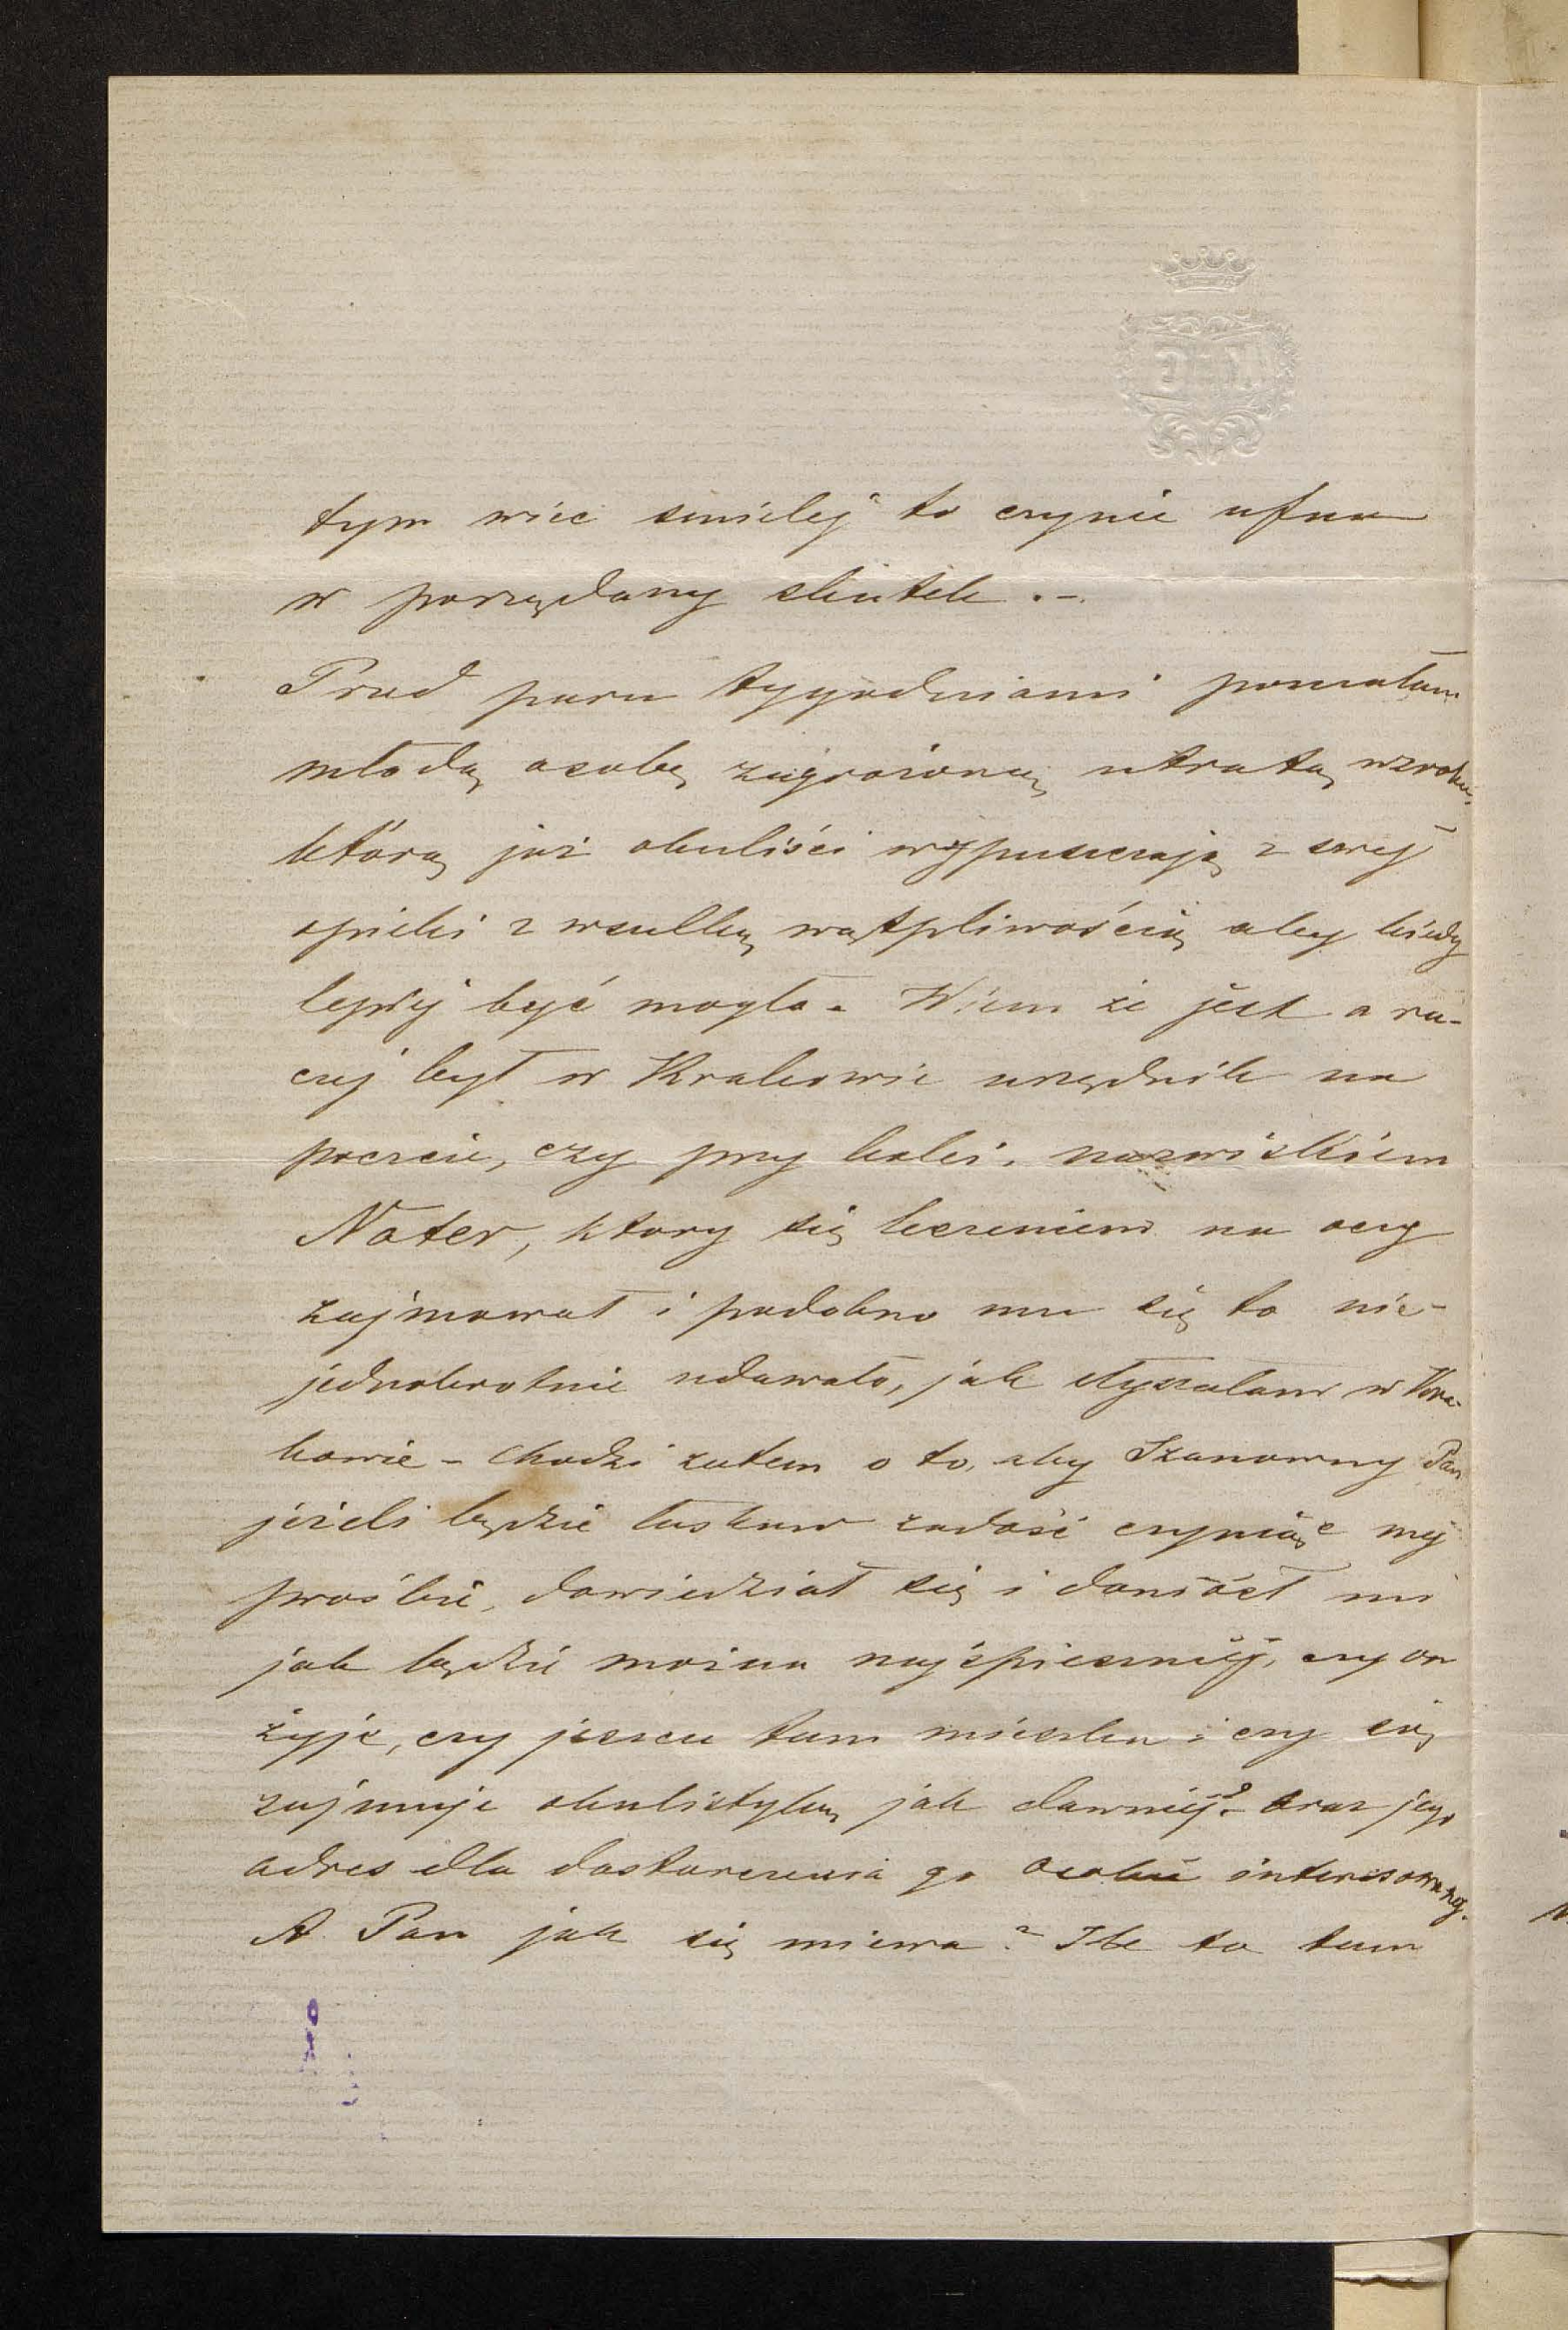 tym więc śmielej to czynię ufna
w porządany skutek.–
Przed paru tygodniami poznałam
młodą osobę zagrożoną utratą wzroku,
którą już okuliści wypuszczają z swej
opieki z wszelką wątpliwością aby kiedy
lepiej być mogło. Wiem że jest a ra-
czej był w Krakowie urzędnik na
poczcie, czy przy kolei, nazwiskiem
Nater, ktory się leczeniem na oczy
zajmował i podobno mu się to nie-
jednokrotnie udawało, jak słyszałam w Kra-
kowie – Chodzi zatem o to, aby Szanowny Pan
jeżeli będzie łaskaw zadość czyniąc mej
prośbie, dowiedział się i doniósł mi
jak będzie można najśpieszniej, czy on
żyje, czy jeszcze tam mieszka i czy się
zajmuje okulistyką jak dawniej? – oraz jego
adres dla dostarczenia go osobie interesowanej.
A Pan jak się miewa? Ile to tam